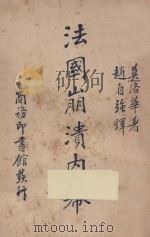 莫洛華著
趙自強譯
法國崩潰内幕
商務印書館發行